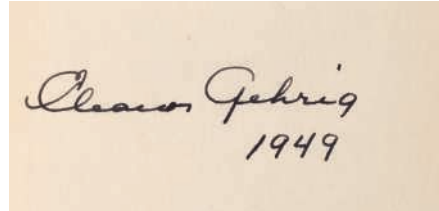 Eleanor Gehrig
1949